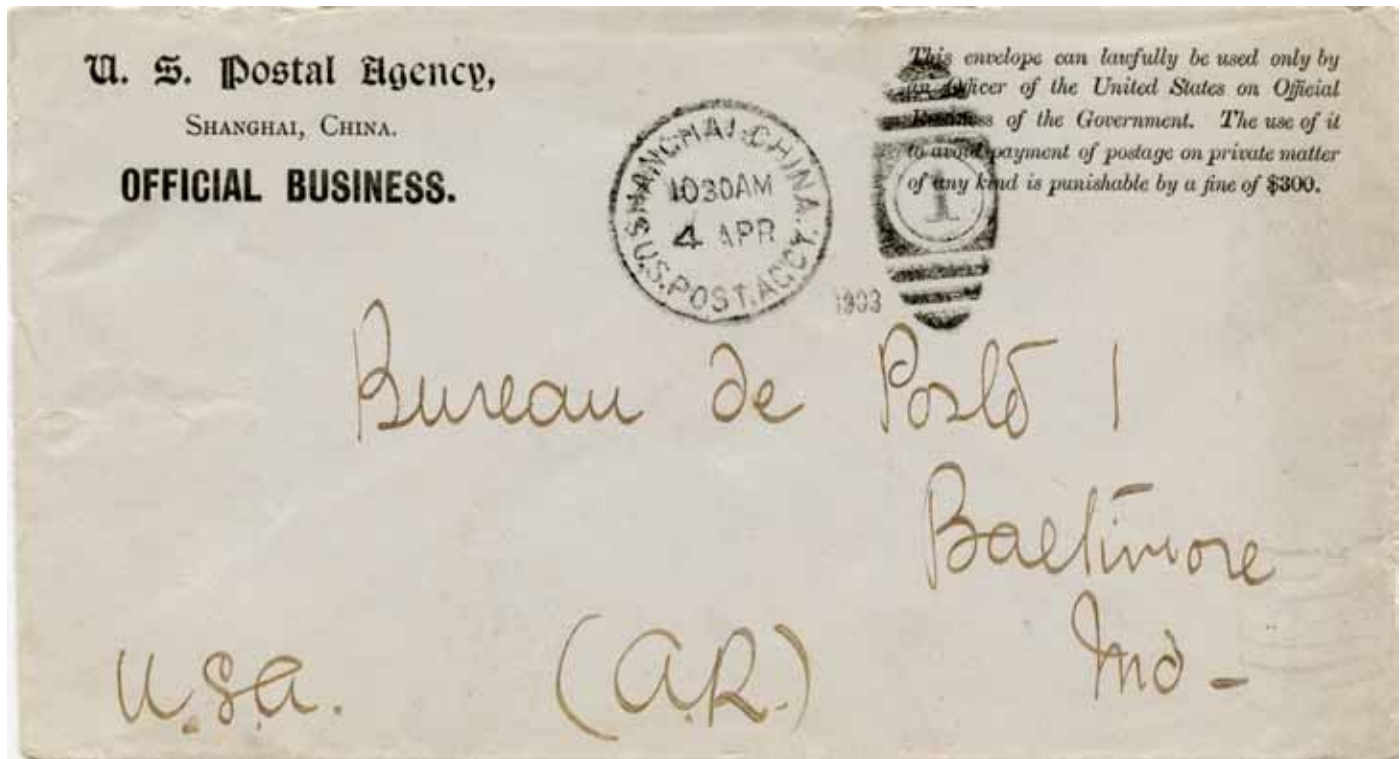 U. S. Postal Agency,
SHANGHAI, CHINA.
OFFICIAL BUSINESS.
This envelope can lawfully be used only by
an Officer of the United States on Official
Business of the Government. The use of it
to avoid payment of postage on private matter
of any kind is punishable by a fine of $300.
SHANGHAI, CHINA.
1030AM
4 APR
U.S. POST. AGCY.
1903
1
Bureau de Poste 1
Baltimore
Md -
U.S.A.
(A.R.)